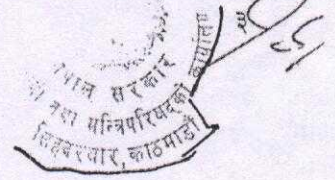 नेपाल सरकार
तथा मन्त्रिपरिषद्को कार्यालय
सिंहदरवार, काठमाडौं